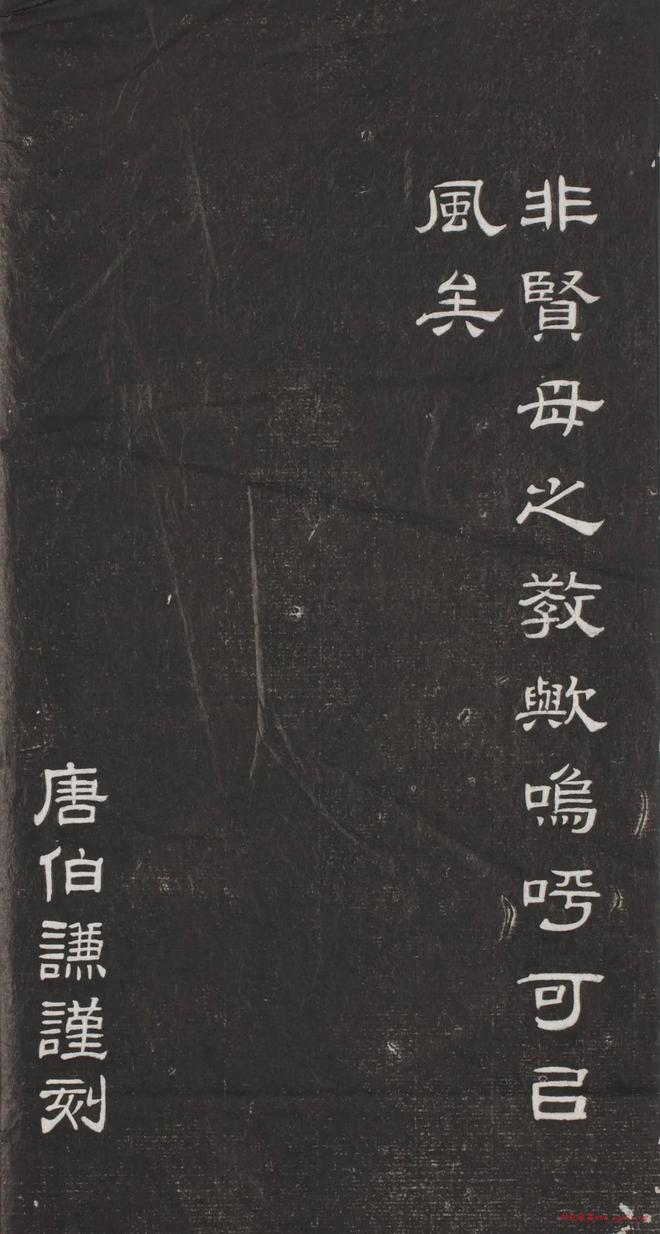 非賢母之教歟嗚呼可㠯
風矣
唐伯謙謹刻